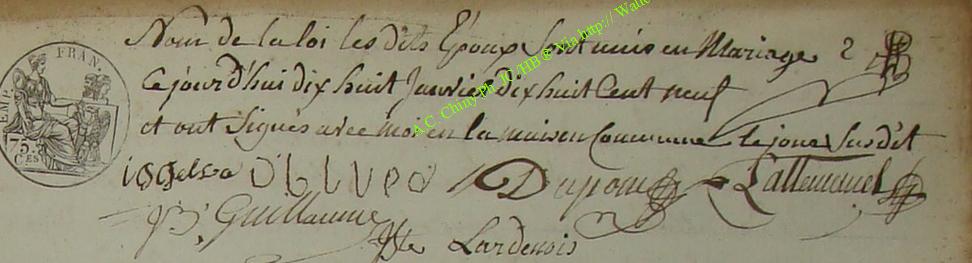 EMP. FRAN.
75.
CES
Nom de la loi les dits Epoux Sont unis en Mariage
ce jourd'hui dix huit Janvier dix huit Cent neuf
et ont Signés avec moi en la maison Commune le jour Susdit
Dupont Lallemand
Guillaume
Lardenois
A.C. Chiny Ph. JC.HB @ Via http:// Wallo